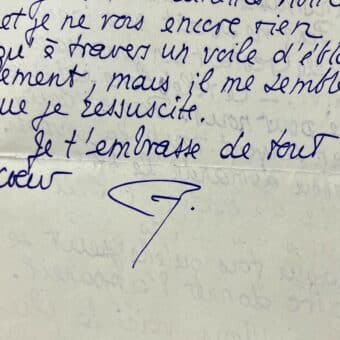 et je ne vois encore rien
qu'à travers un voile d'éblo
ement, mais il me semble
ue je ressuscite.
Je t'embrasse de tout
coeur